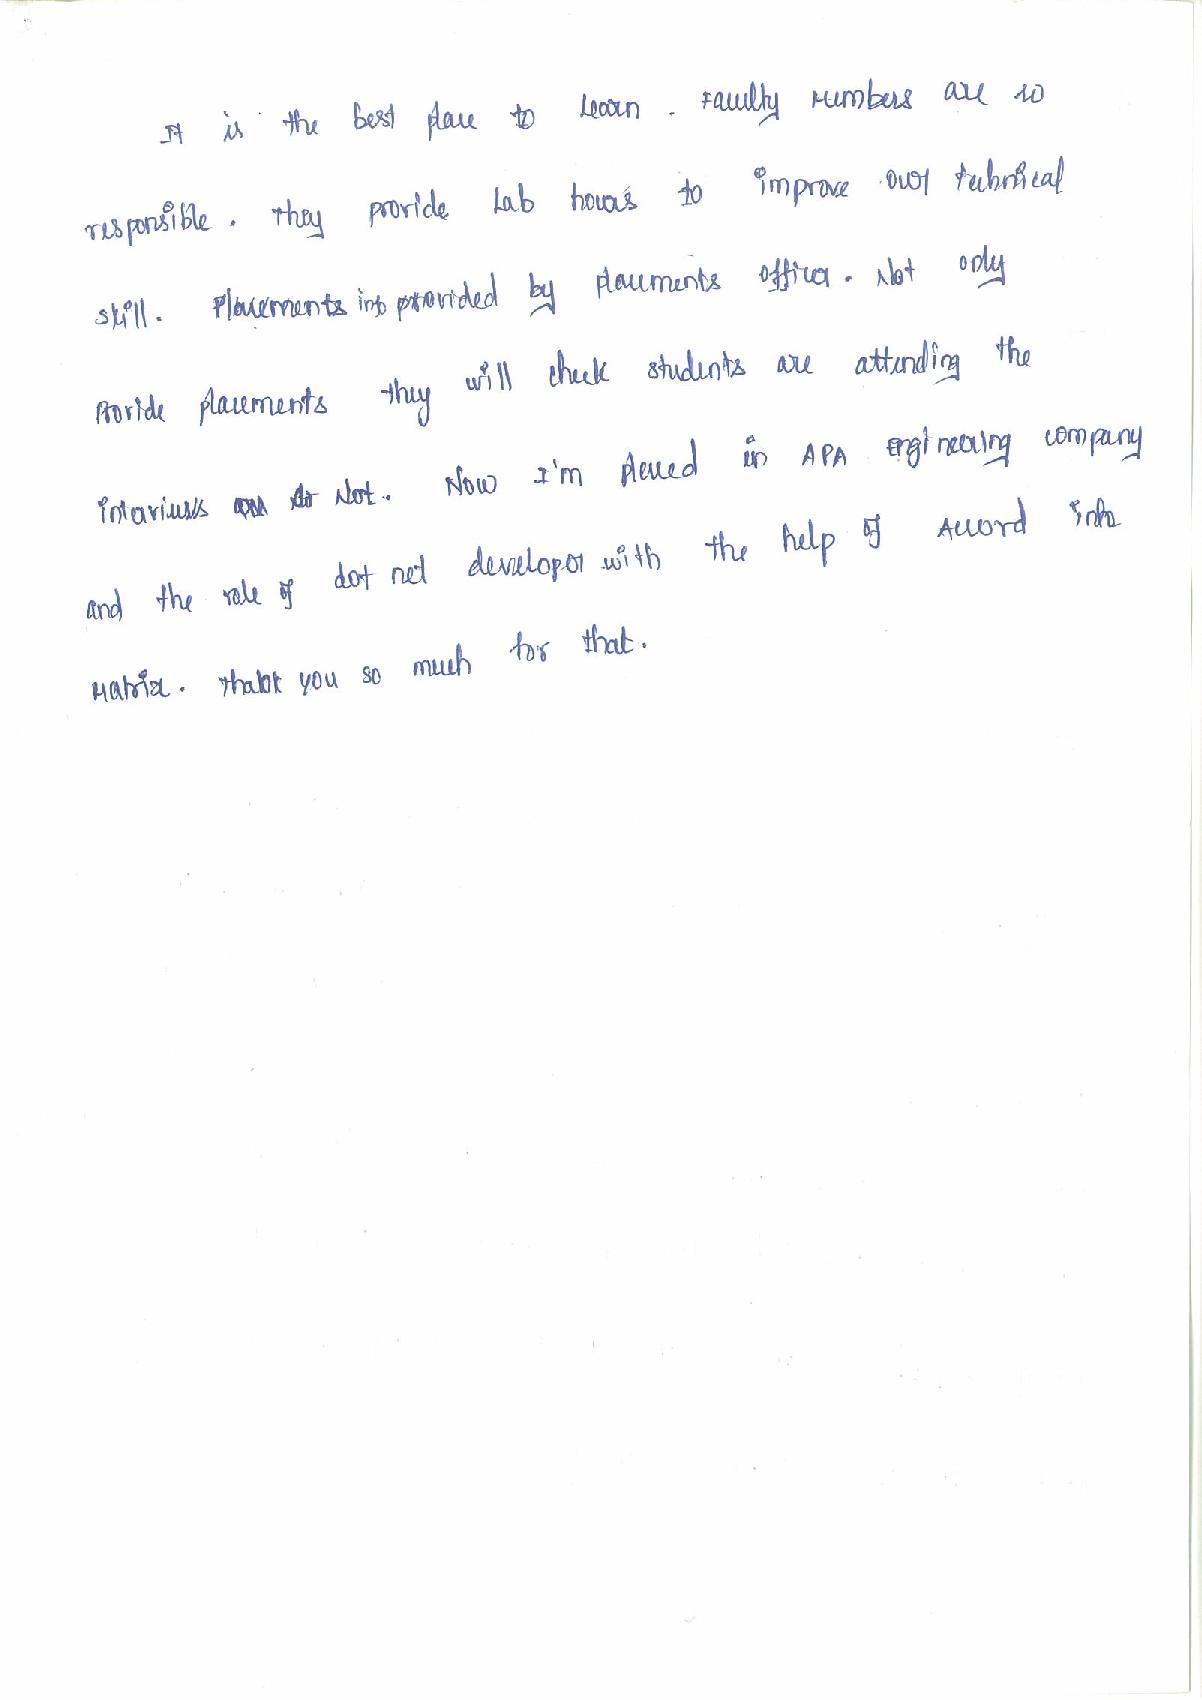 It is the best place to Learn. Faculty Members are so
responsible. They provide Lab hours to improve our technical
skill. Placements info provided by placements officer. Not only
provide placements they will check students are attending the
interviews or Not. Now I'm placed in APA engineering company
and the role of dot net developer with the help of Accord info
Matrix. Thank you so much for that.